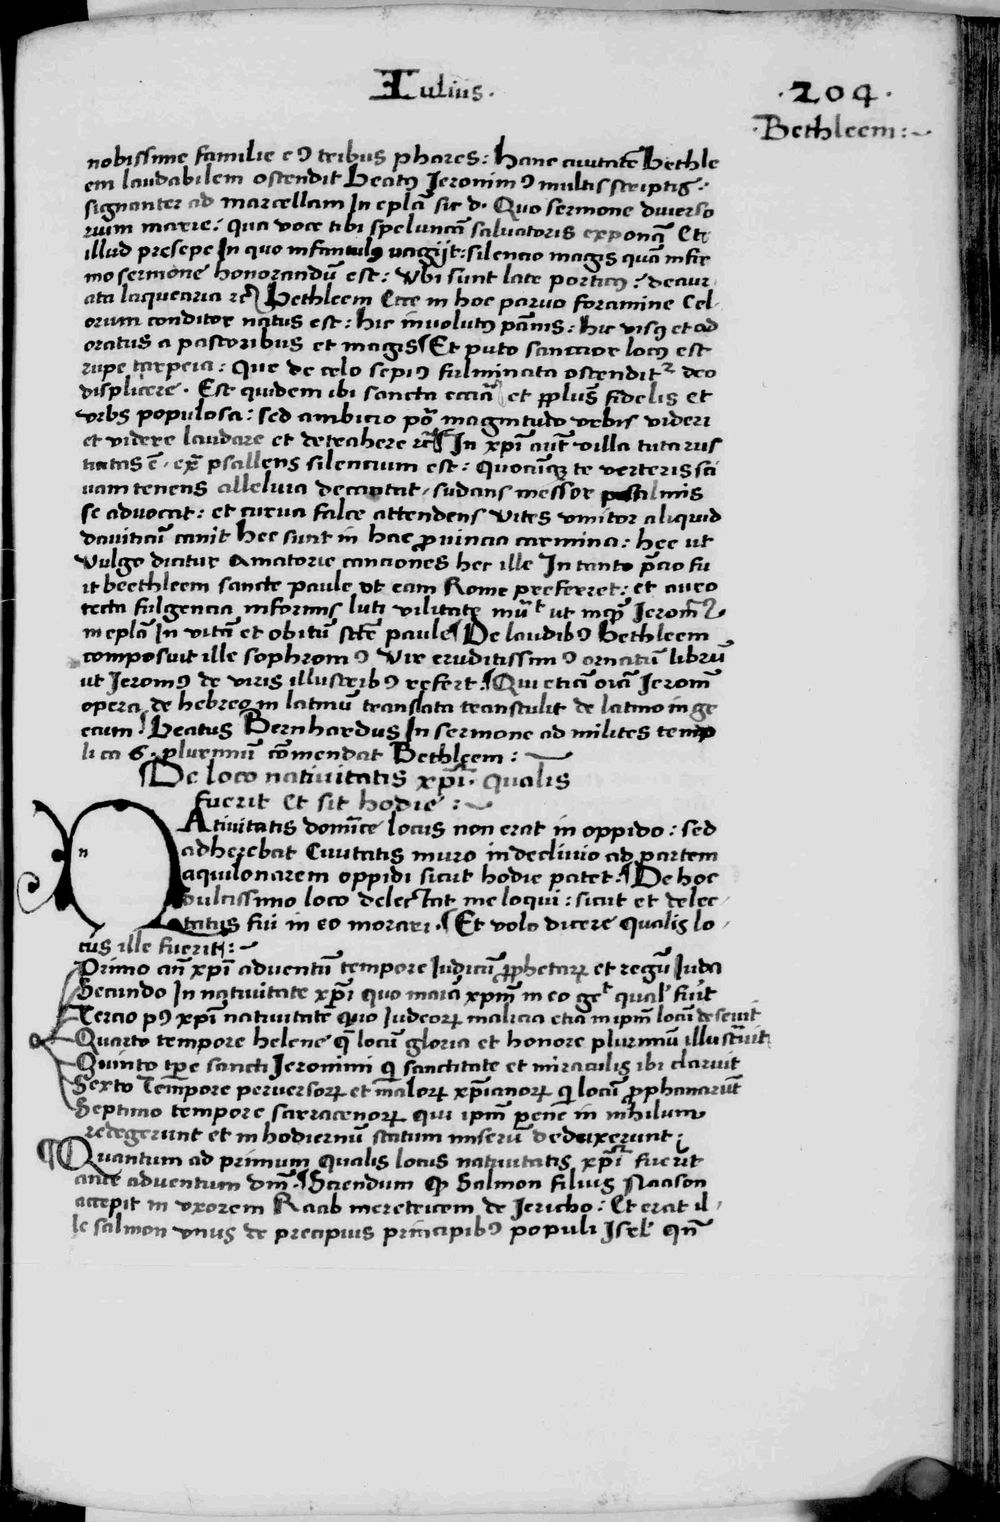 Iulius.
.204.
.Bethleem:~
nobissime familie eꝰ tribus phares: hanc ciuitatē Bethle
em laudabilem ostendit Beatꝰ Jeronimꝰ multis scriptis:
signanter ad marcellam In eplā sic d. Quo sermone diuerso
rium marie: qua voce tibi speluncā saluatoris exponā Et
illud presepe In quo infantulꝰ uagijt: silencio magis quā infir
mo sermone honorandū est: Vbi sunt late porticꝰ: deaur
ata laquearia rc̄ Bethleem Ecce in hoc paruo foramine Cel
orum conditor natus est: hic inuolutꝰ pānis: hic visꝰ et ad
oratus a pastoribus et magis ¶ Et puto sanctior locꝰ est
rupe tarpeia: Que de celo sepiꝰ fulminata ostenditr deo
displicere. Est quidem ibi sancta eccīa et pplūs fidelis et
vrbs populosa: sed ambicio pō magnitudo vrbis videri
et videre laudare et detrahere rc̄ ¶ In xpī aūt villa tuta rus
ticitas ē. ex̄ psallens silencium est: quocūqꝫ te verteris sti
uam tenens alleluia decantat. sudans messor psalmis
se aduocat: et curua falce attendens Vites vinitor aliquid
dauiticū canit Hec sunt in hac ꝓuincia carmina: hec ut
Vulgo dicitur Amatorie canciones hec ille In tanto p̄cio fu
it beethleem sancte paule vt eam Rome preferret: et aureo
tecta fulgencia informis luti vilitate mūt ut inqt̄ Jeromꝰ
in eplā In vitā et obitū sctē paule ¶ De laudibꝰ Bethleem
composuit ille sophromꝰ Vir eruditissimꝰ ornatū librū
ut Jeromꝰ de viris illustribꝰ refert. ¶ Qui etiā oīa Jeromī
opera de hebreo in latinū translata transtulit de latino in ge
cum ¶ Beatus Bernhardus In sermone ad milites temp
li ca 6. plurimū cōmendat Bethleem:
¶ De loco natiuitatis xpī. qualis
fuerit et sit hodie:~
n
Atiuitatis domīce locus non erat in oppido: sed
adherebat Ciuitatis muro in decliuio ad partem
aquilonarem oppidi sicut hodie patet. ¶ De hoc
dulcissimo loco delectat me loqui: sicut et delec
tatus fui in eo morari. ¶ Et volo dicere qualis lo
cus ille fuerit:~
Primo an̄ xpī aduentū tempore Iudicū ꝓphetaꝝ et regū Iuda
Secundo In natiuitate xpī quo maria xpm̄ in eo get qual' fuit
Tercio pꝰ xpī natiuitatē quo iudeoꝝ malicia etia in ipm̄ locū deseuit
Quarto tempore helene q̄ locū gloria et honore plurimū illustuit
Quinto tp̄e sancti Jeronimi q̄ sanctitate et miraculis ibi claruit
Sexto Tempore peruersoꝝ et maloꝝ xpīanoꝝ qi locū ꝓphanarūt
Septimo tempore sarracenoꝝ qui ipm̄ pene in nihilum
redegerunt et in hodiernū statum miserū deduxerunt:
¶ Quantum ad primum qualis locus natiuitatis xpī fuerit
ante aduentum dnī. ¶ Sciendum ꝙ Salmon filius Naason
accepit in vxorem Raab meretricem de Jericho: Et erat il
le salmon vnus de precipuis principibꝰ populi Isrl' qn̄